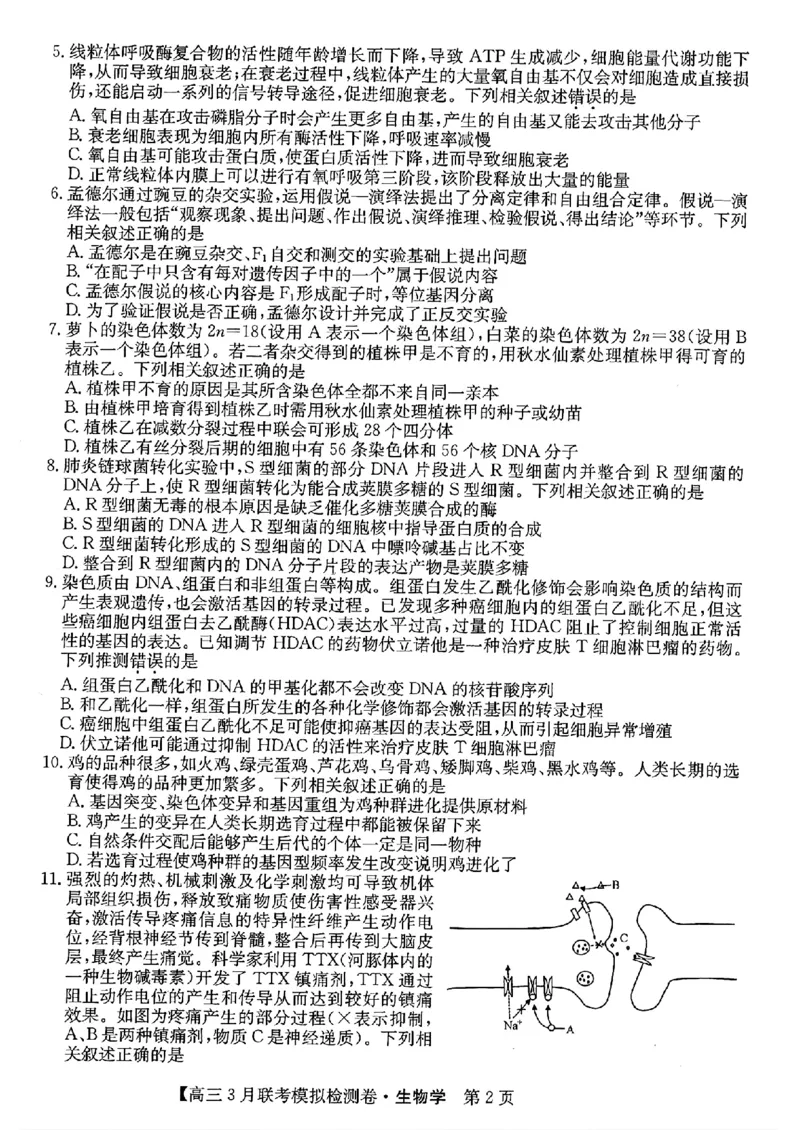 5. 线粒体呼吸酶复合物的活性随年龄增长而下降,导致 ATP 生成减少,细胞能量代谢功能下
降,从而导致细胞衰老;在衰老过程中,线粒体产生的大量氧自由基不仅会对细胞造成直接损
伤,还能启动一系列的信号转导途径,促进细胞衰老。下列相关叙述错误的是
A. 氧自由基在攻击磷脂分子时会产生更多自由基,产生的自由基又能去攻击其他分子
B. 衰老细胞表现为细胞内所有酶活性下降,呼吸速率减慢
C. 氧自由基可能攻击蛋白质,使蛋白质活性下降,进而导致细胞衰老
D. 正常线粒体内膜上可以进行有氧呼吸第三阶段,该阶段释放出大量的能量
6. 孟德尔通过豌豆的杂交实验,运用假说—演绎法提出了分离定律和自由组合定律。假说—演
绎法一般包括“观察现象、提出问题、作出假说、演绎推理、检验假说、得出结论”等环节。下列
相关叙述正确的是
A. 孟德尔是在豌豆杂交、F₁ 自交和测交的实验基础上提出问题
B. “在配子中只含有每对遗传因子中的一个”属于假说内容
C. 孟德尔假说的核心内容是 F₁ 形成配子时,等位基因分离
D. 为了验证假说是否正确,孟德尔设计并完成了正反交实验
7. 萝卜的染色体数为 2n=18(设用 A 表示一个染色体组),白菜的染色体数为 2n=38(设用 B
表示一个染色体组)。若二者杂交得到的植株甲是不育的,用秋水仙素处理植株甲得可育的
植株乙。下列相关叙述正确的是
A. 植株甲不育的原因是其所含染色体全都不来自同一亲本
B. 由植株甲培育得到植株乙时需用秋水仙素处理植株甲的种子或幼苗
C. 植株乙在减数分裂过程中联会可形成 28 个四分体
D. 植株乙有丝分裂后期的细胞中有 56 条染色体和 56 个核 DNA 分子
8. 肺炎链球菌转化实验中,S 型细菌的部分 DNA 片段进入 R 型细菌内并整合到 R 型细菌的
DNA 分子上,使 R 型细菌转化为能合成荚膜多糖的 S 型细菌。下列相关叙述正确的是
A. R 型细菌无毒的根本原因是缺乏催化多糖荚膜合成的酶
B. S 型细菌的 DNA 进入 R 型细菌的细胞核中指导蛋白质的合成
C. R 型细菌转化形成的 S 型细菌的 DNA 中嘌呤碱基占比不变
D. 整合到 R 型细菌内的 DNA 分子片段的表达产物是荚膜多糖
9. 染色质由 DNA、组蛋白和非组蛋白等构成。组蛋白发生乙酰化修饰会影响染色质的结构而
产生表观遗传,也会激活基因的转录过程。已发现多种癌细胞内的组蛋白乙酰化不足,但这
些癌细胞内组蛋白去乙酰酶(HDAC)表达水平过高,过量的 HDAC 阻止了控制细胞正常活
性的基因的表达。已知调节 HDAC 的药物伏立诺他是一种治疗皮肤 T 细胞淋巴瘤的药物。
下列推测错误的是
A. 组蛋白乙酰化和 DNA 的甲基化都不会改变 DNA 的核苷酸序列
B. 和乙酰化一样,组蛋白所发生的各种化学修饰都会激活基因的转录过程
C. 癌细胞中组蛋白乙酰化不足可能使抑癌基因的表达受阻,从而引起细胞异常增殖
D. 伏立诺他可能通过抑制 HDAC 的活性来治疗皮肤 T 细胞淋巴瘤
10. 鸡的品种很多,如火鸡、绿壳蛋鸡、芦花鸡、乌骨鸡、矮脚鸡、柴鸡、黑水鸡等。人类长期的选
育使得鸡的品种更加繁多。下列相关叙述正确的是
A. 基因突变、染色体变异和基因重组为鸡种群进化提供原材料
B. 鸡产生的变异在人类长期选育过程中都能被保留下来
C. 自然条件交配后能够产生后代的个体一定是同一物种
D. 若选育过程使鸡种群的基因型频率发生改变说明鸡进化了
11. 强烈的灼热、机械刺激及化学刺激均可导致机体
局部组织损伤,释放致痛物质使伤害性感受器兴
奋,激活传导疼痛信息的特异性纤维产生动作电
位,经背根神经节传到脊髓,整合后再传到大脑皮
层,最终产生痛觉。科学家利用 TTX(河豚体内的
一种生物碱毒素)开发了 TTX 镇痛剂,TTX 通过
阻止动作电位的产生和传导从而达到较好的镇痛
效果。如图为疼痛产生的部分过程(×表示抑制,
A、B 是两种镇痛剂,物质 C 是神经递质)。下列相
关叙述正确的是
B
C
Na⁺
A
【高三 3 月联考模拟检测卷·生物学 第 2 页